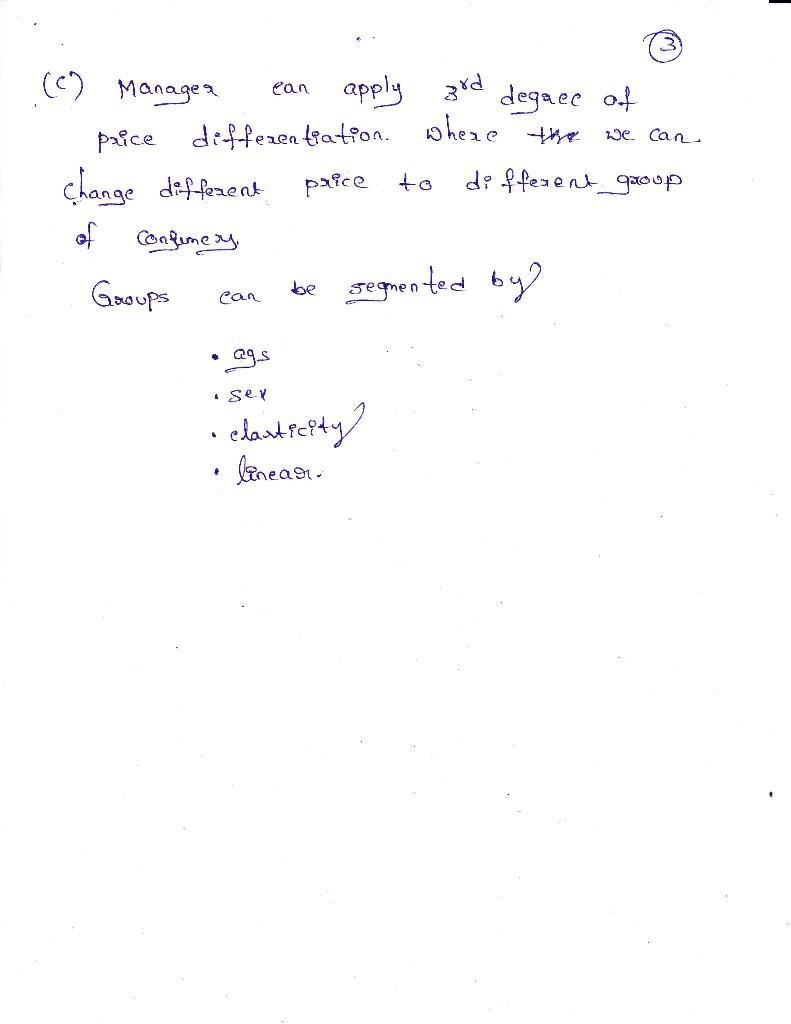 3
(c) Manager can apply 3rd degree of
price differentiation. Where the we can
change different price to different group
of consumers.
Groups can be segmented by
• age
• sex
• elasticity
• linear.